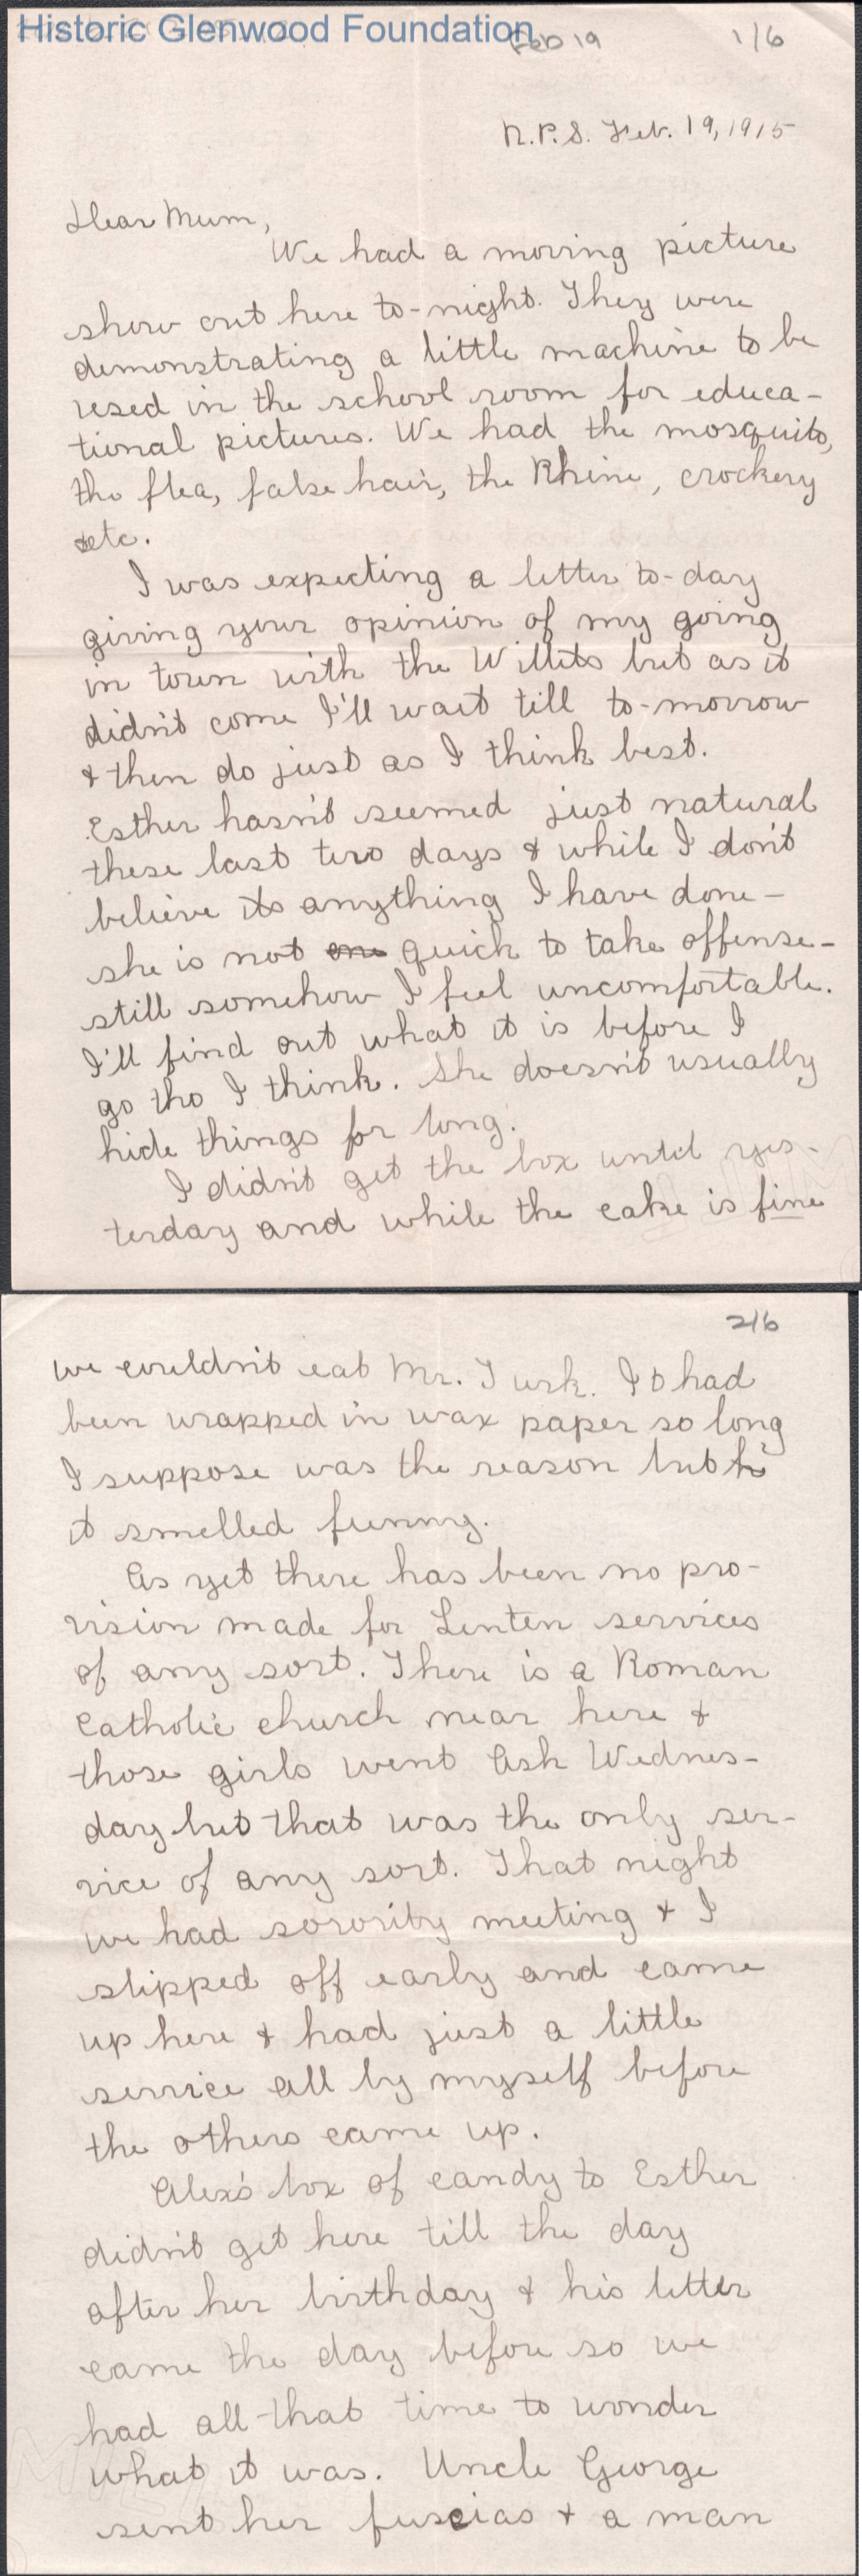 Historic Glenwood Foundation
Feb 19
1/6
N.P.S. Feb. 19, 1915
Dear Mum,
We had a moving picture
show out here to-night. They were
demonstrating a little machine to be
used in the school room for educa-
tional pictures. We had the mosquito,
the flea, false hair, the Rhine, crockery
etc.
I was expecting a letter to-day
giving your opinion of my going
in town with the Willits but as it
didn't come I'll wait till to-morrow
& then do just as I think best.
Esther hasn't seemed just natural
these last two days & while I don't
believe its anything I have done -
she is not one quick to take offense -
still somehow I feel uncomfortable.
I'll find out what it is before I
go tho I think. She doesn't usually
hide things for long.
I didn't get the box until yes-
terday and while the cake is fine
2/6
we couldn't eat Mr. Turk. It had
been wrapped in wax paper so long
I suppose was the reason but
it smelled funny.
As yet there has been no pro-
vision made for Lenten services
of any sort. There is a Roman
Catholic church near here &
those girls went Ash Wednes-
day but that was the only ser-
vice of any sort. That night
we had sorority meeting & I
slipped off early and came
up here & had just a little
service all by myself before
the others came up.
Alex's box of candy to Esther
didn't get here till the day
after her birthday & his letter
came the day before so we
had all that time to wonder
what it was. Uncle George
sent her fuscias & a man